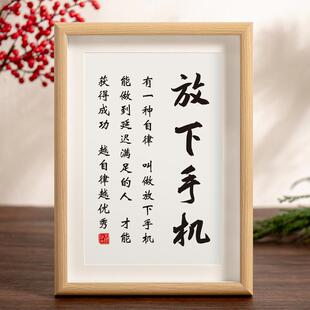 放下手机
有一种自律 叫做放下手机
能做到延迟满足的人 才能
获得成功 越自律越优秀